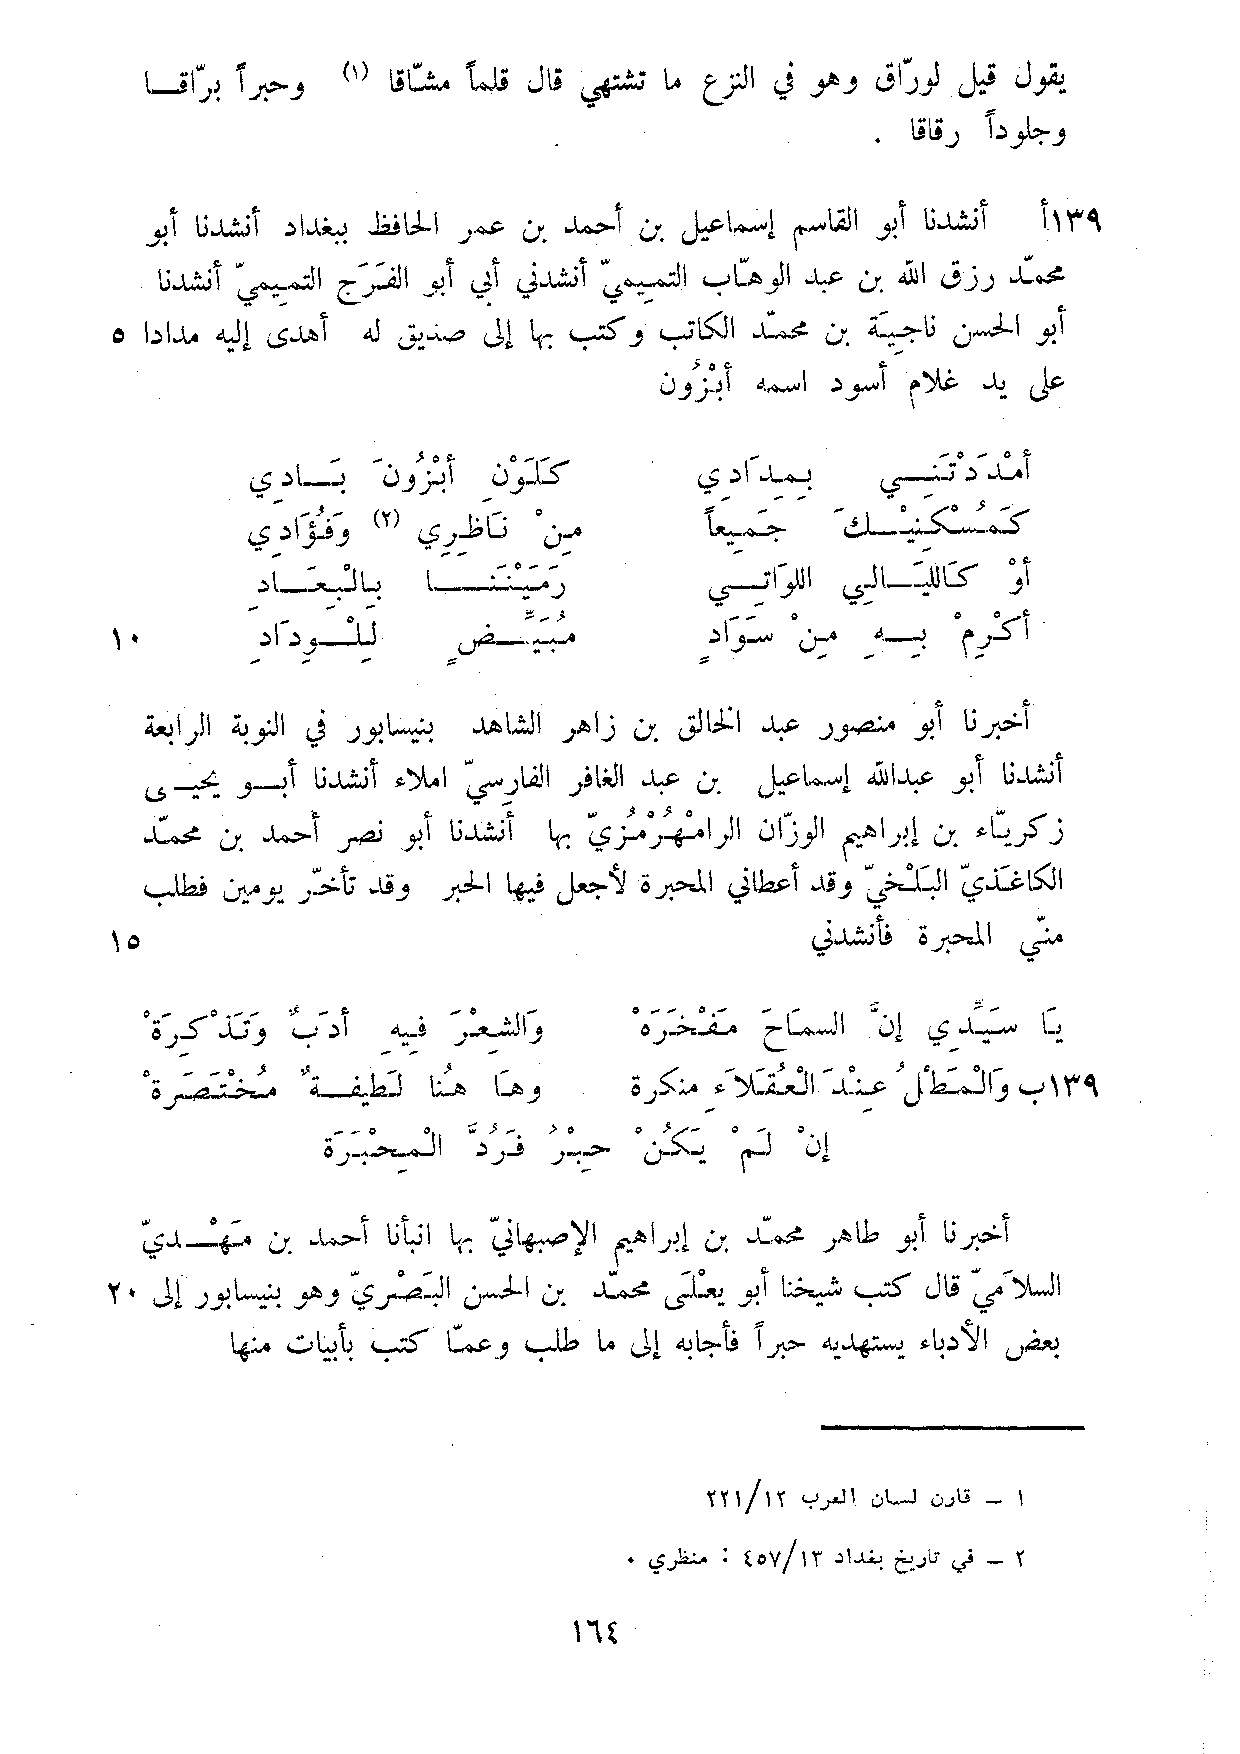 يقول قيل لورّاق وهو في النزع ما تشتهي قال قلماً مشّاقا (١) وحبراً برّاقـا
وجلوداً رقاقا .
١٣٩أ أنشدنا أبو القاسم إسماعيل بن أحمد بن عمر الحافظ ببغداد أنشدنا أبو
محمّد رزق الله بن عبد الوهّاب التميميّ أنشدني أبي أبو الفَرَج التميميّ أنشدنا
أبو الحسن ناجيَة بن محمّد الكاتب وكتب بها إلى صديق له أهدى إليه مدادا ٥
على يد غلام أسود اسمه أبْزُون
أمْدَدْتَنِـي بِمِدَادِي كَلَوْنِ أبْزُونَ بَـادِي
كَمُسْكِنِيْـكَ جَمِيعاً مِنْ نَاظِرِي (٢) وَفُؤَادِي
أوْ كَاللّيَـالِي اللوَاتِـي رَمَيْنَنَـا بِالْبِعَـادِ
أكْرِمْ بِـهِ مِنْ سَوَادٍ مُبَيِّـضٍ لِلْـوِدَادِ ١٠
أخبرنا أبو منصور عبد الخالق بن زاهر الشاهد بنيسابور في النوبة الرابعة
أنشدنا أبو عبدالله إسماعيل بن عبد الغافر الفارسيّ املاء أنشدنا أبـو يحيـى
زكريّاء بن إبراهيم الوزّان الرامهُرْمُزيّ بها أنشدنا أبو نصر أحمد بن محمّد
الكاغَذيّ البَلْخيّ وقد أعطاني المحبرة لأجعل فيها الحبر وقد تأخّر يومين فطلب
منّي المحبرة فأنشدني ١٥
يَا سَيِّدِي إنَّ السمَاحَ مَفْخَرَهْ وَالشِعْرَ فِيهِ أدَبٌ وَتَذْكِرَةْ
١٣٩ب وَالْمَطْلُ عِنْدَ الْعُقَلَاءِ منكرة وهَا هُنَا لَطِيفَةٌ مُخْتَصَرَةْ
إنْ لَمْ يَكُنْ حِبْرُ فَرُدَّ الْمِحْبَرَة
أخبرنا أبو طاهر محمّد بن إبراهيم الإصبهانيّ بها انبأنا أحمد بن مَهْـديّ
السلاَميّ قال كتب شيخنا أبو يعْلَى محمّد بن الحسن البَصْريّ وهو بنيسابور إلى ٢٠
بعض الأدباء يستهديه حبراً فأجابه إلى ما طلب وعمّا كتب بأبيات منها
١ – قارن لسان العرب ١٢/٢٢١
٢ – في تاريخ بغداد ١٣/٤٥٧ : منظري ٠
١٦٤